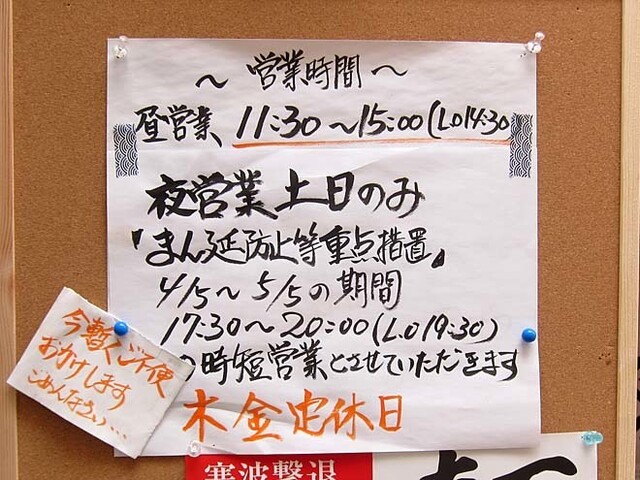 ～ 営業時間 ～
昼営業、11:30～15:00(L.O14:30
夜営業土日のみ
『まん延防止等重点措置』
4/5～5/5の期間
17:30～20:00(L.O19:30)
の時短営業とさせていただきます
木金定休日
今暫くご不便
おかけします
ごめんなさい…
寒波撃退